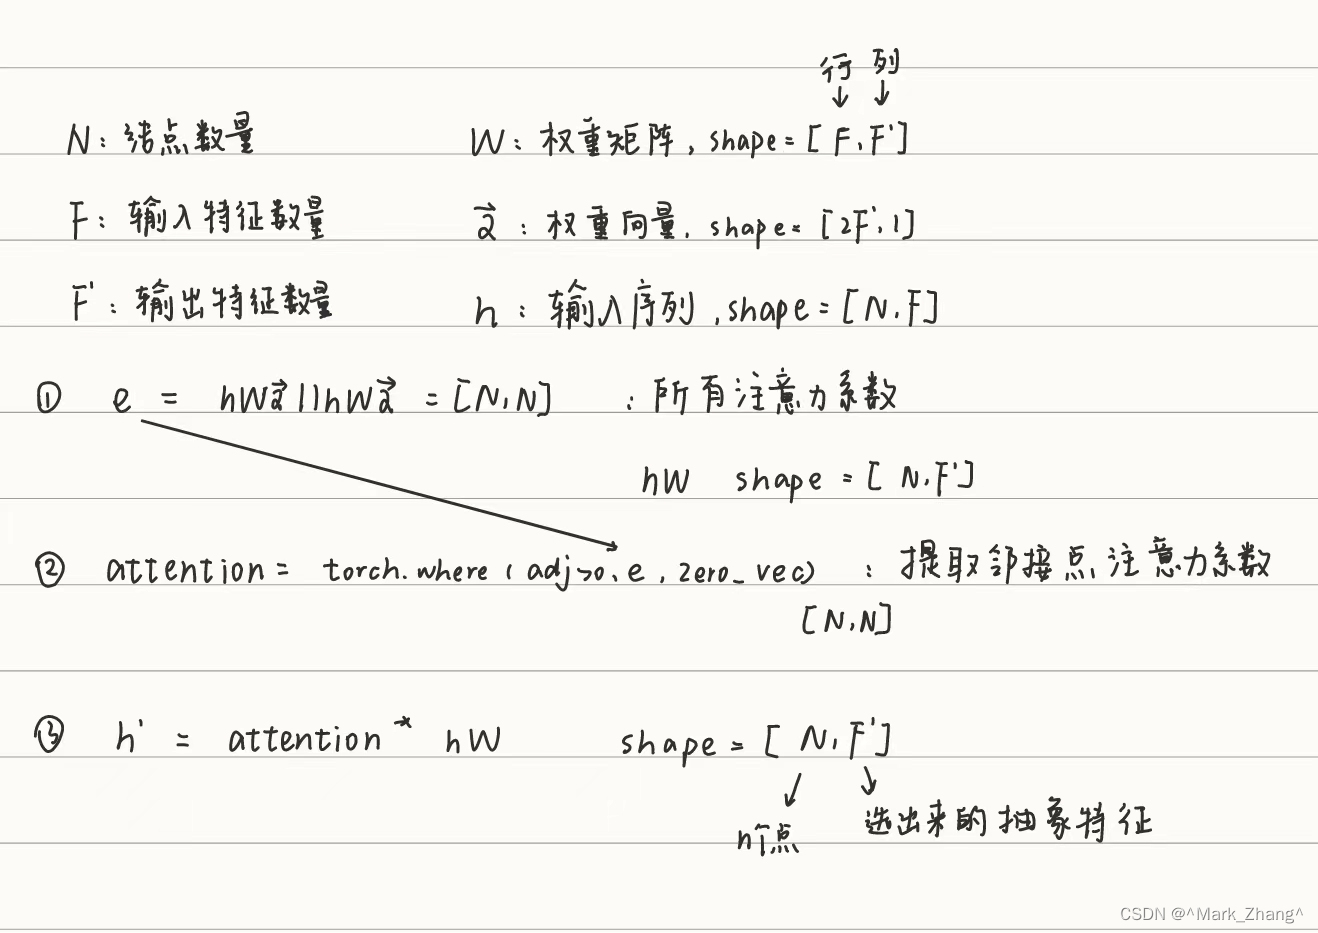 行 列
↓ ↓
N: 结点数量 W: 权重矩阵, shape=[F,F']
F: 输入特征数量 a⃗: 权重向量, shape=[2F',1]
F': 输出特征数量 h: 输入序列, shape=[N,F]
① e = hWa⃗||hWa⃗ = [N,N] : 所有注意力系数
hW shape = [N,F']
② attention = torch.where(adj>0, e, zero_vec) : 提取邻接点注意力系数
[N,N]
③ h' = attention * hW shape=[N,F']
n个点 选出来的抽象特征
CSDN @^Mark_Zhang^